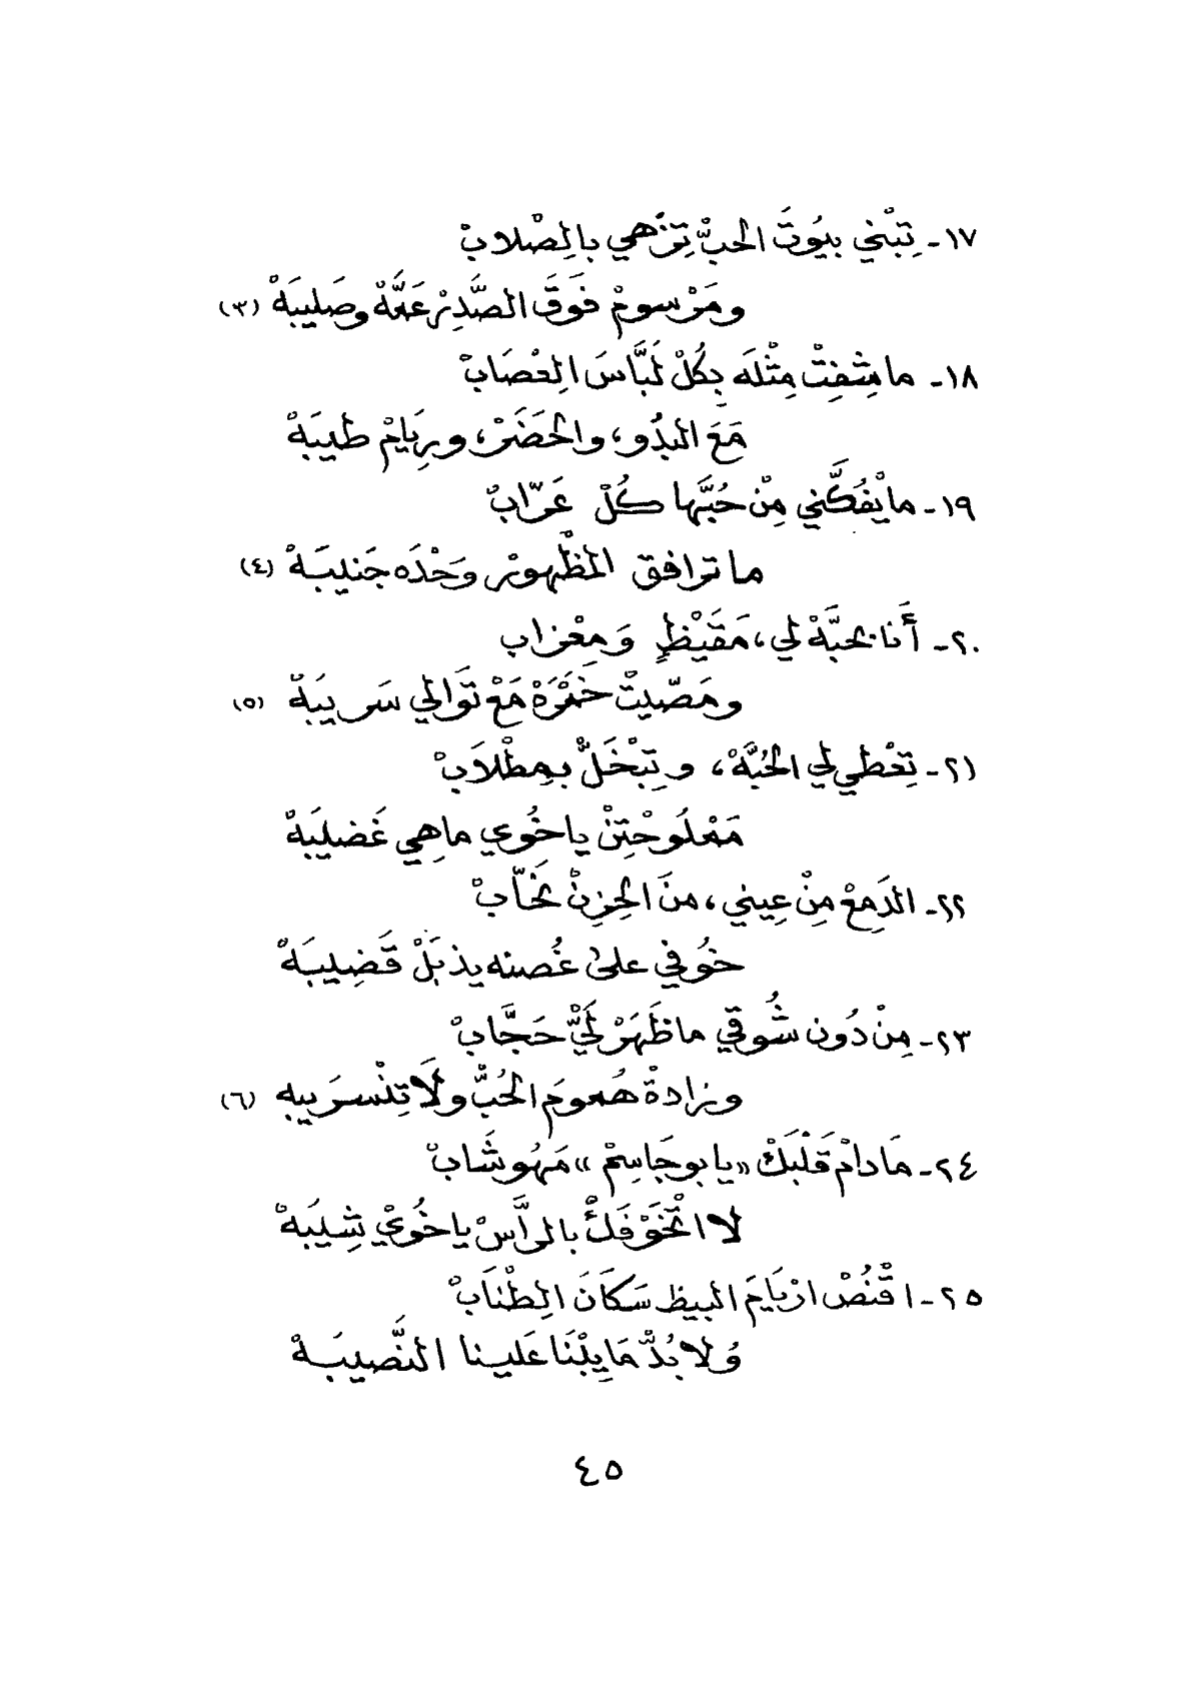 ١٧- تِبْني بيُوتَ الحبّْ تِزْهي بالِصْلابْ
ومَرْسومْ فَوَقَ الصَّدِرْ عَمَّهْ وصَليبَهْ (٣)
١٨- ما شِفِتْ مِثْلَه بِكُلْ لَبَّاسَ الِعْصَابْ
مَعَ البدُو، والحَضَرْ، ورِيَامْ طيبَهْ
١٩- ما يْفُكَّني مِنْ حُبَّها كُلْ عَرّابْ
ما ترافق المظْهورْ وَحْدَه جَنيبَهْ (٤)
٢٠- أَنا بحبَّهْ لي، مَقَيْظٍ وَمِعْزاب
ومَصّيتْ خَمْرَهْ مَعْ تَوَالي سَريبَهْ (٥)
٢١- تِخْطي لي الحُبَّهْ، وتِبْخَلّْ بمِطْلاَبْ
مَمْلُوحْتِنْ ياخُوي ماهِي غَضيبَهْ
٢٢- الدَمِعْ مِنْ عِيني، منَ الحِزِنْ نَخّابْ
خوُفي على غُصنه يذبَلْ قَضِيبَهْ
٢٣- مِنْ دُون شُوقي ما ظَهَرْ لَيّْ حَجَّابْ
وزادةْ هُمومَ الحُبّْ ولاَ تِنْسرَيبه (٦)
٢٤- مَادامْ قَلْبَكْ «يابوجَاسِمْ» مَهُوشَابْ
لا اتْخَوْفَكْ بالرَّاسْ ياخُويْ شِيبَهْ
٢٥- اقْنُصْ ارْيَامَ البيظ سَكَانَ الِطْنَابْ
وُلا بُدّْ مَا يِلْنَا عَلينا النَّصيبَهْ
٤٥